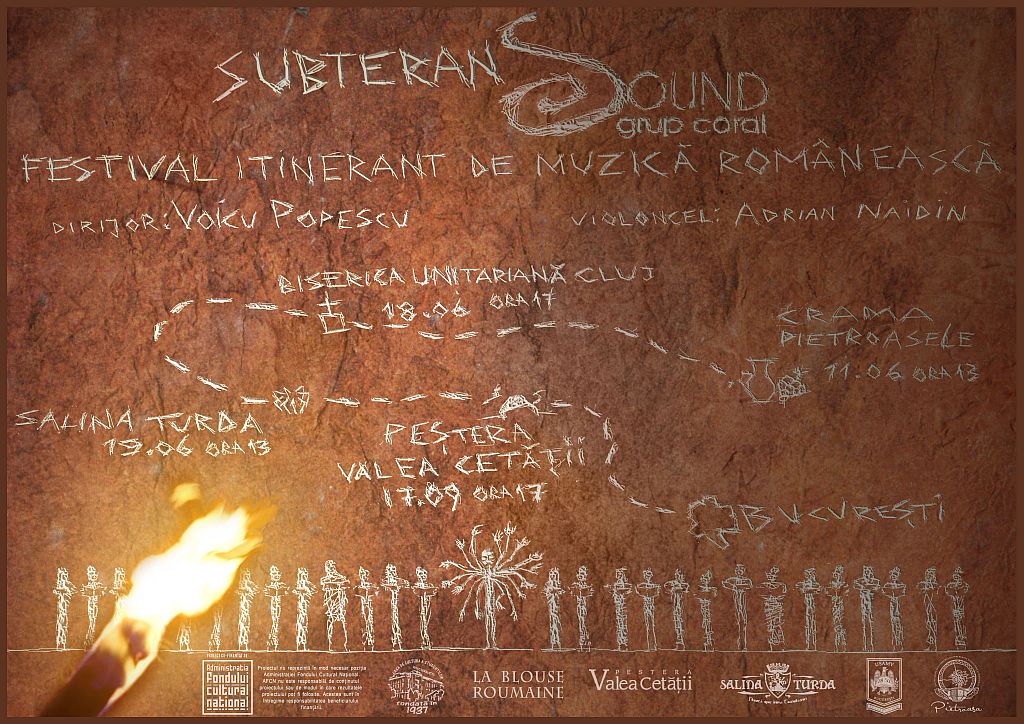 SUBTERAN SOUND
grup coral
FESTIVAL ITINERANT DE MUZICĂ ROMÂNEASCĂ
DIRIJOR: VOICU POPESCU
VIOLONCEL: ADRIAN NAIDIN
BISERICA UNITARIANĂ CLUJ
18.06 ORA 17
CRAMA
PIETROASELE
11.06 ORA 13
SALINA TURDA
19.06 ORA 13
PEȘTERA
VALEA CETĂȚII
17.09 ORA 17
BUCUREȘTI
PROIECT CO-FINANȚAT DE
Administrația
Fondului
cultural
național
Proiectul nu reprezintă în mod necesar poziția
Administrației Fondului Cultural Național.
AFCN nu este responsabilă de conținutul
proiectului sau de modul în care rezultatele
proiectului pot fi folosite. Acestea sunt în
întregime responsabilitatea beneficiarului
finanțării.
fondată în
1937
LA BLOUSE
ROUMAINE
PEȘTERA
Valea Cetății
SALINA TURDA
USAMV
Pietroasa